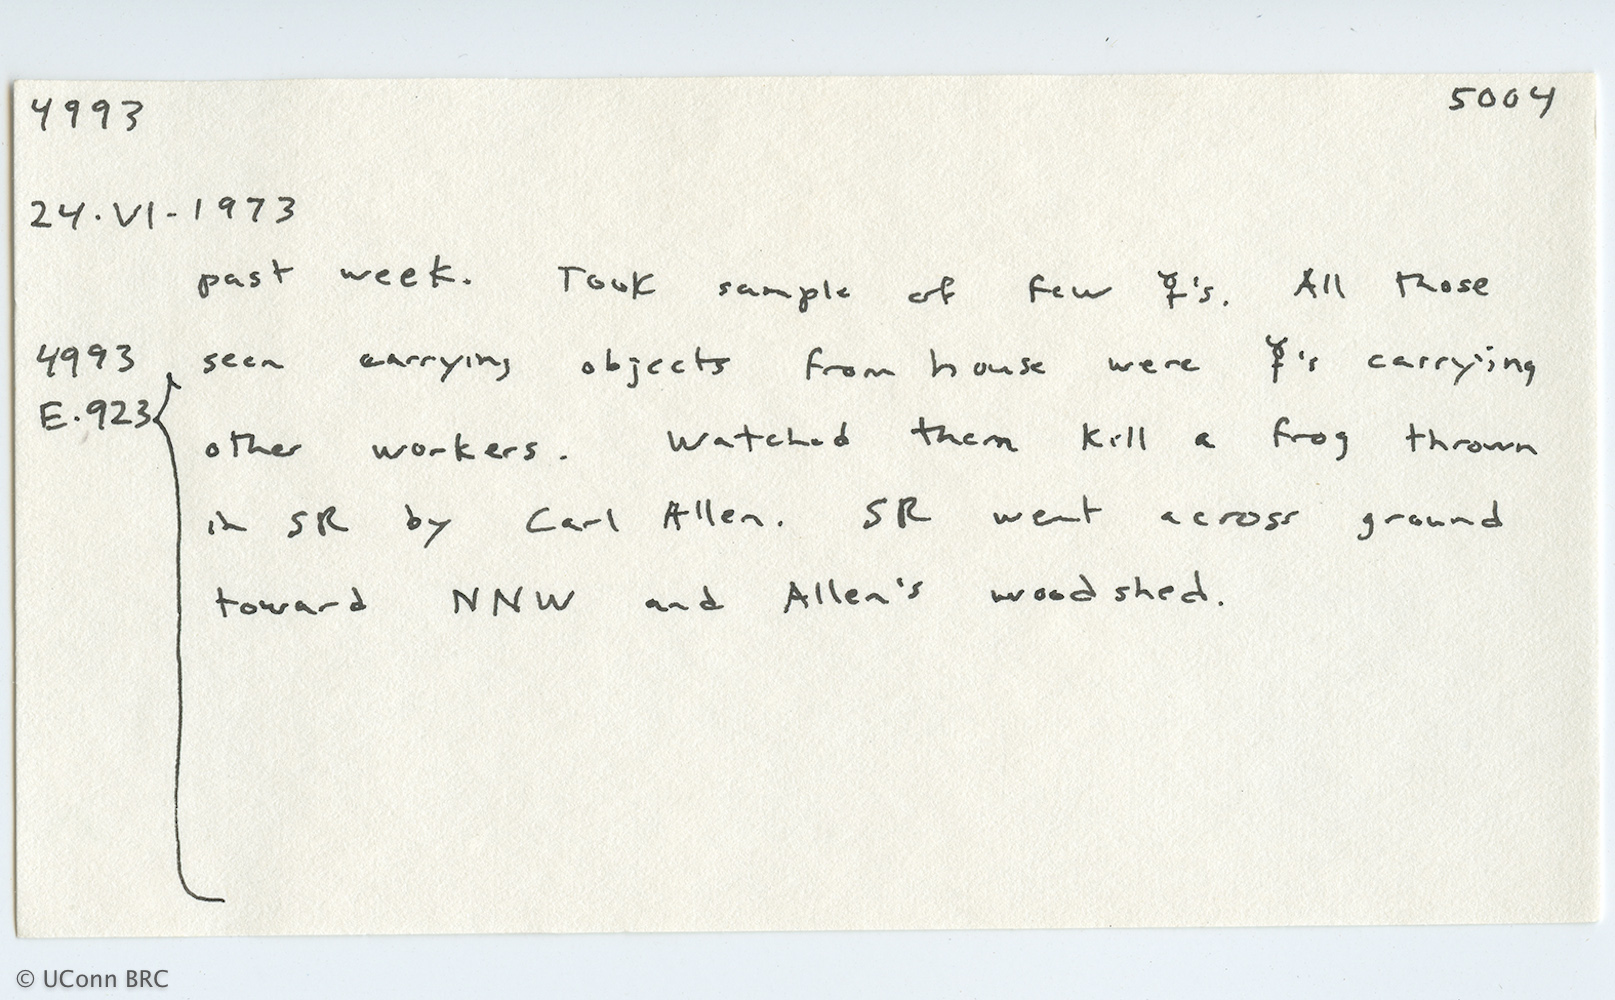 4993 5004
24·VI-1973
past week. Took sample of few ☿'s. All those
4993 seen carrying objects from house were ☿'s carrying
E·923 other workers. Watched them kill a frog thrown
in SR by Carl Allen. SR went across ground
toward NNW and Allen's woodshed.
© UConn BRC